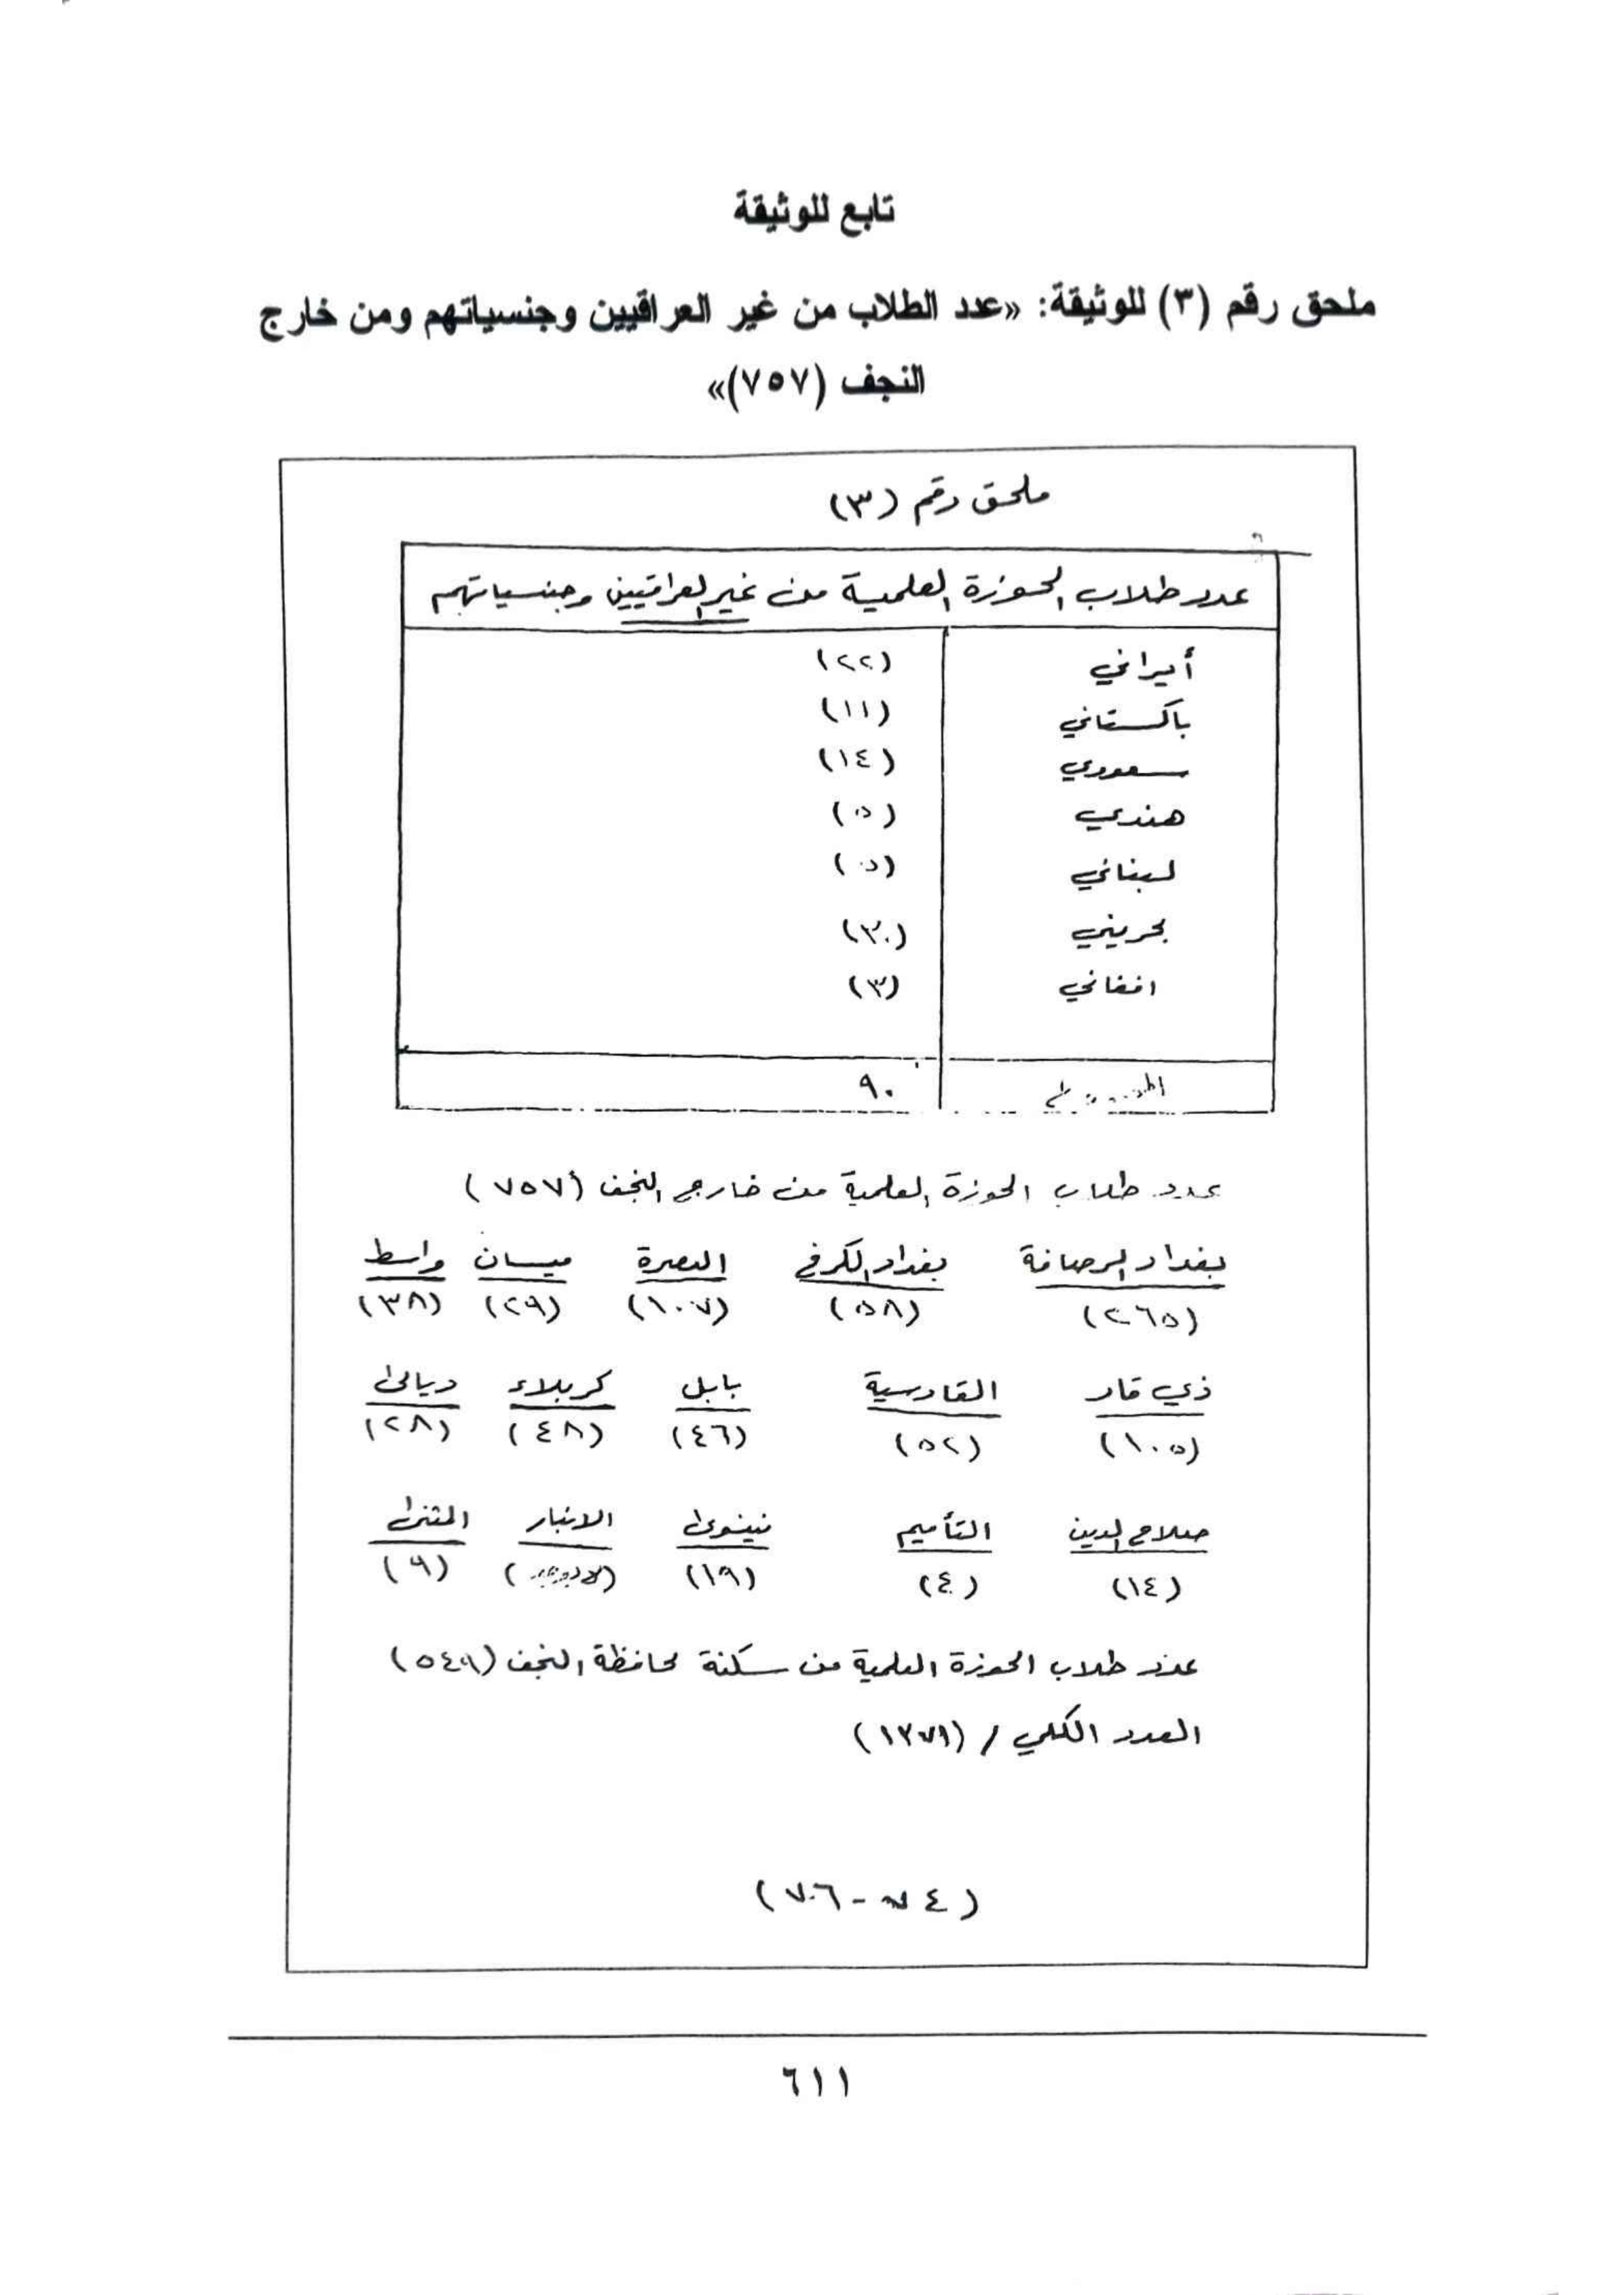 تابع للوثيقة
ملحق رقم (٣) للوثيقة: «عدد الطلاب من غير العراقيين وجنسياتهم ومن خارج
النجف (٧٥٧)»
ملحق رقم (٣)
عدد طلاب الحوزة العلمية من غير العراقيين وجنسياتهم
أيراني (٢٢)
باكستاني (١١)
سعودي (١٤)
هندي (٥)
لبناني (٥)
بحريني (٣٠)
افغاني (٣)
المجموع ٩٠
عدد طلاب الحوزة العلمية من خارج النجف (٧٥٧)
بغداد الرصافة بغداد الكرخ البصرة ميسان واسط
(٢٦٥) (٥٨) (١٠٧) (٢٩) (٣٨)
ذي قار القادسية بابل كربلاء ديالى
(١٠٥) (٥٢) (٤٦) (٤٨) (٢٨)
صلاح الدين التأميم نينوى الانبار المثنى
(١٤) (٤) (١٩) (لا يوجد) (٩)
عدد طلاب الحوزة العلمية من سكنة محافظة النجف (٥٤٩)
العدد الكلي / (١٣٧٩)
(٧٠٦ - ٧٤)
٦١١